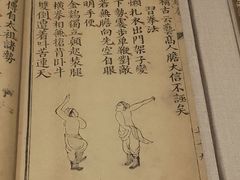 古云藝高人膽大信不誣矣
習拳法
懶扎衣出門架子變
下勢霎步單鞭對敵
若無膽向先空自眼
明手便
金鷄獨立顛起裝腿
橫拳相兼搶背臥牛
雙倒遭着叫苦連天